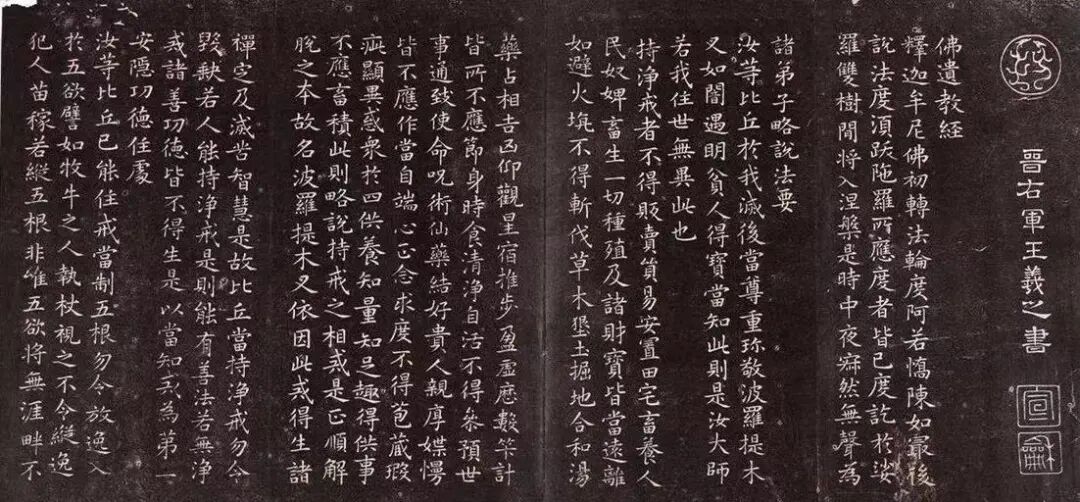 晉右軍王羲之書
宣龢
佛遺教經
釋迦牟尼佛初轉法輪度阿若憍陳如冣後
說法度湏跋陁羅所應度者皆已度訖於娑
羅雙樹閒将入涅槃是時中夜寂然無聲為
諸弟子略說法要
汝等比丘於我滅後當尊重珎敬波羅提木
叉如闇遇明貧人得寶當知此則是汝大師
若我住世無異此也
持淨戒者不得販賣貿易安置田宅畜養人
民奴婢畜生一切種殖及諸財寶皆當遠離
如避火坑不得斬伐草木墾土掘地合和湯
藥占相吉凶仰觀星宿推步盈虛應數筭計
皆所不應節身時食清淨自活不得叅預世
事通致使命呪術仙藥結好貴人親厚媟慢
皆不應作當自端心正念求度不得苞藏瑕
疵顯異惑衆於四供養知量知足趣得供事
不應畜積此則略說持戒之相戒是正順解
脫之本故名波羅提木叉依因此戒得生諸
禪定及滅苦智慧是故比丘當持淨戒勿令
毀缺若人能持淨戒是則能有善法若無淨
戒諸善功德皆不得生是以當知戒為第一
安隱功德住處
汝等比丘已能住戒當制五根勿令放逸入
於五欲譬如牧牛之人執杖視之不令縱逸
犯人苗稼若縱五根非唯五欲将無涯畔不